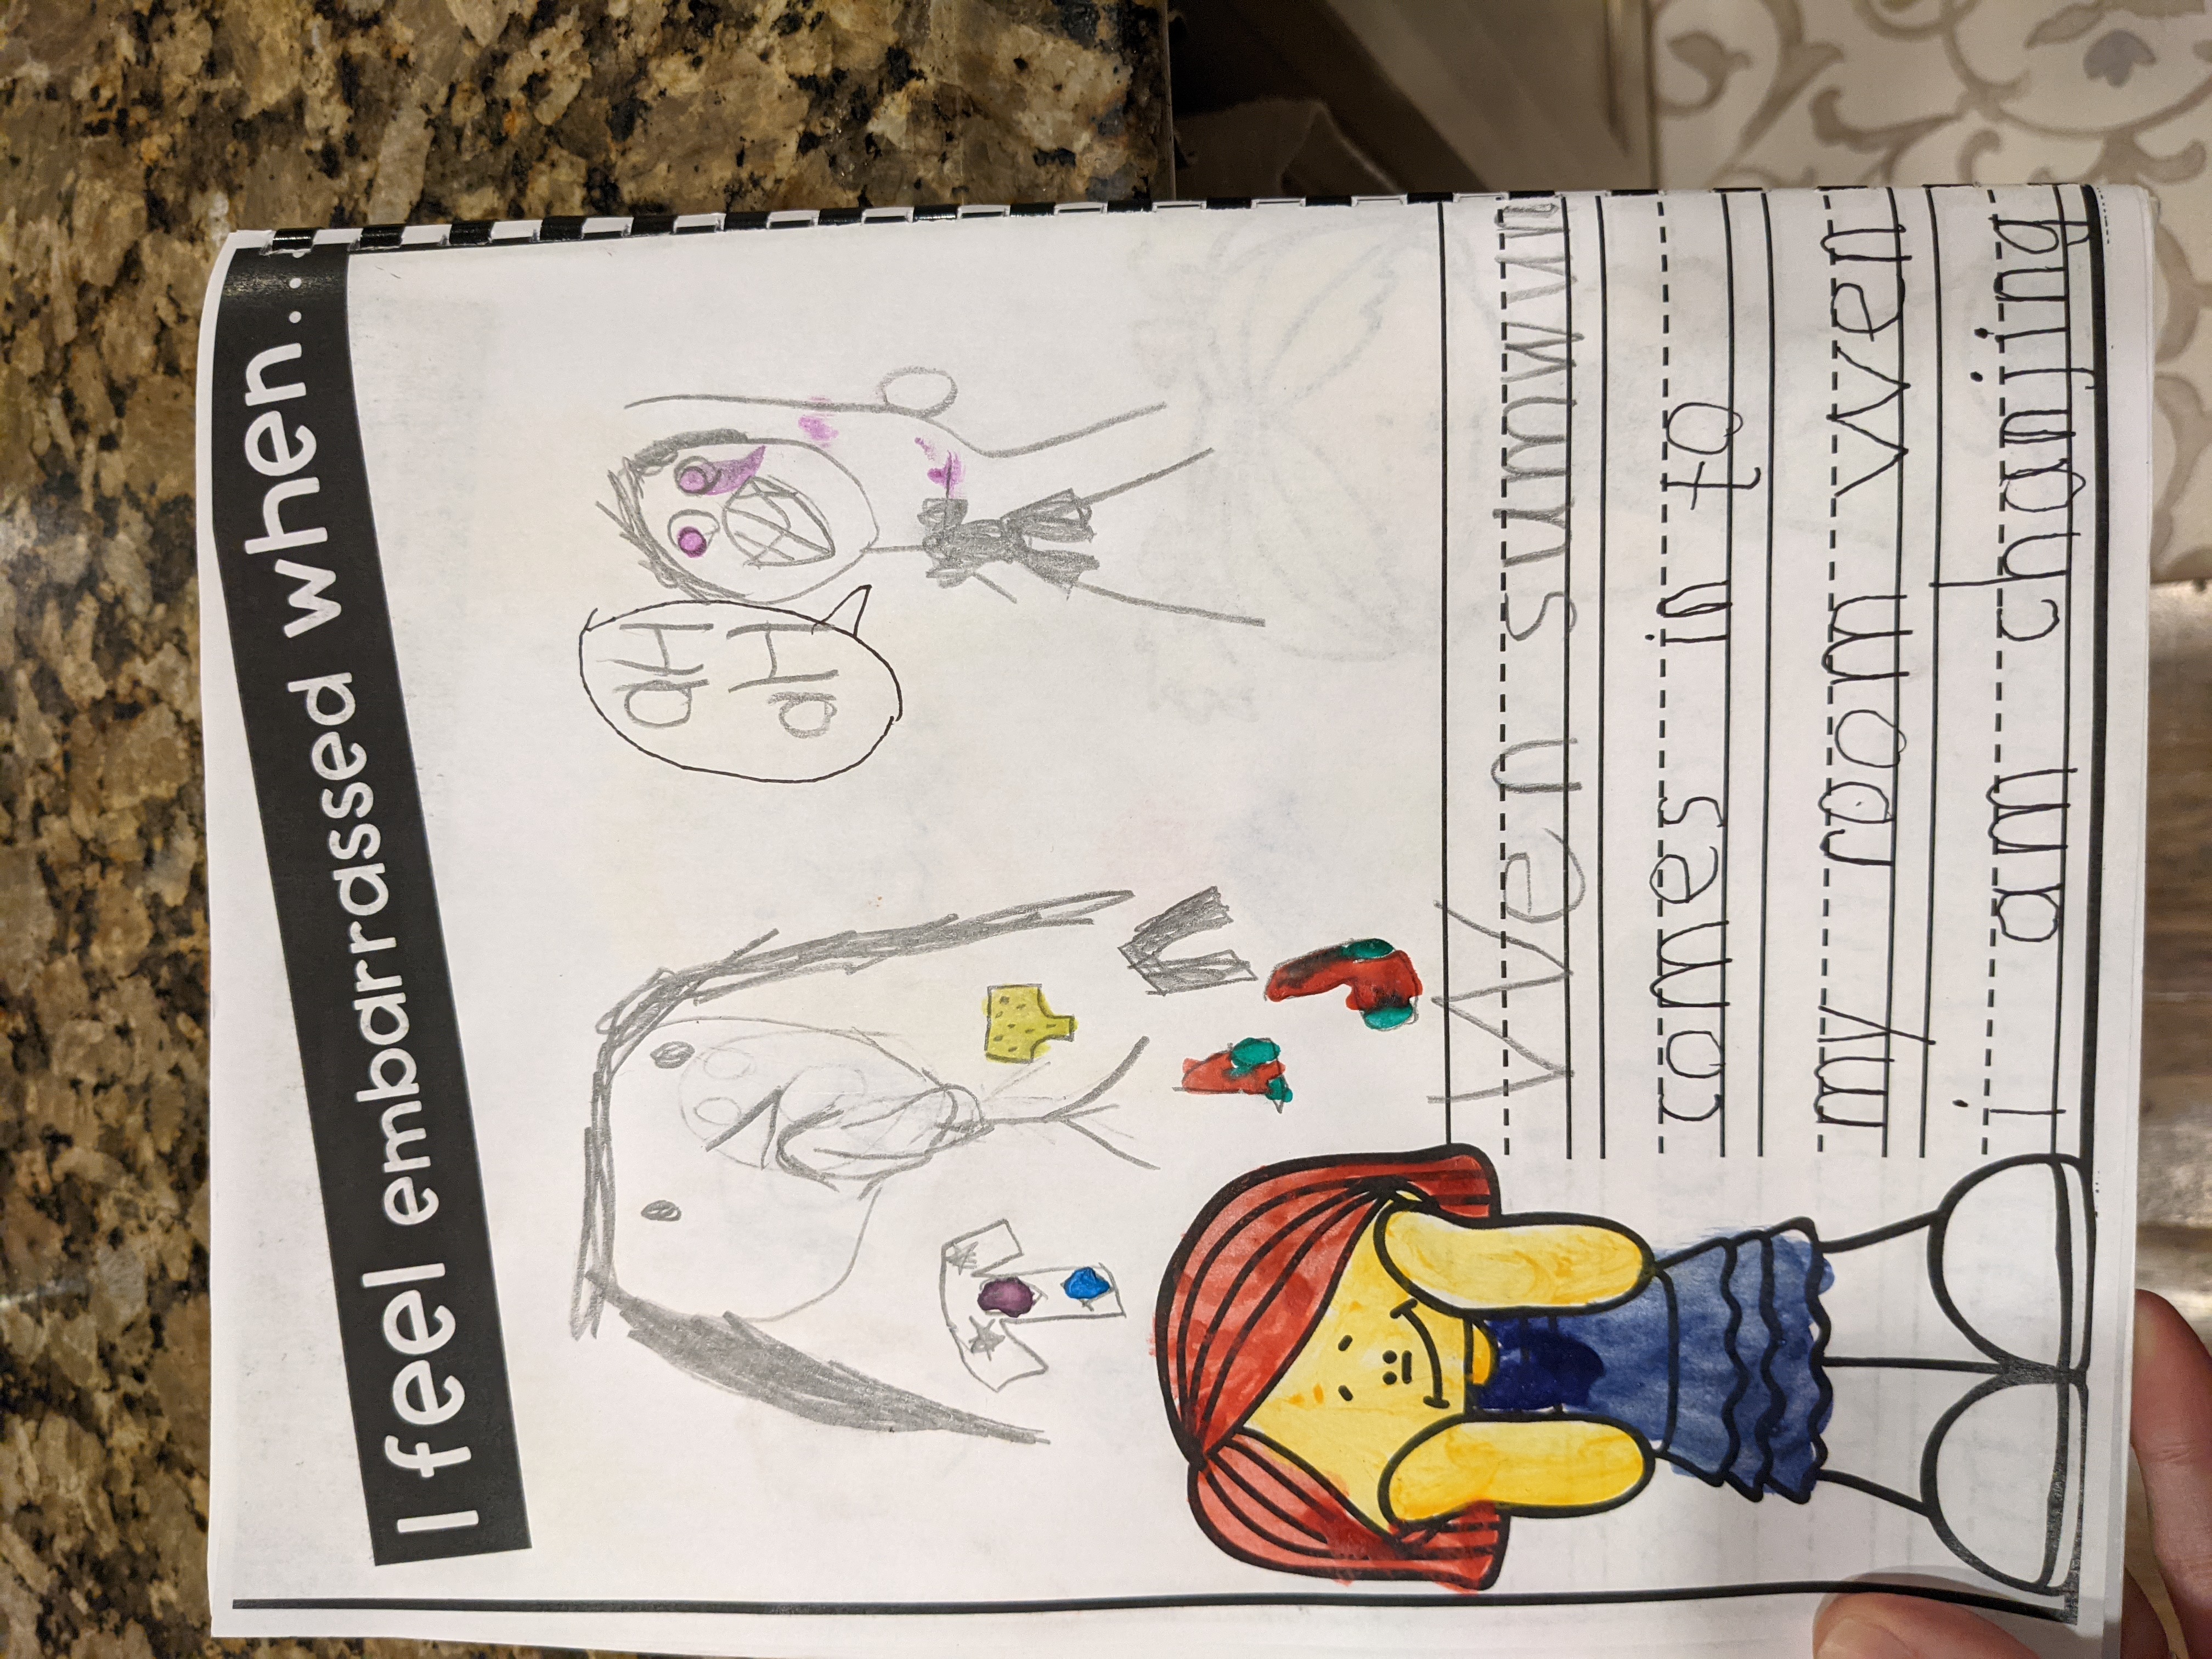 I feel embarrassed when...
aH
aH
Wen sumwun
comes in to
my room wen
i am chanjing